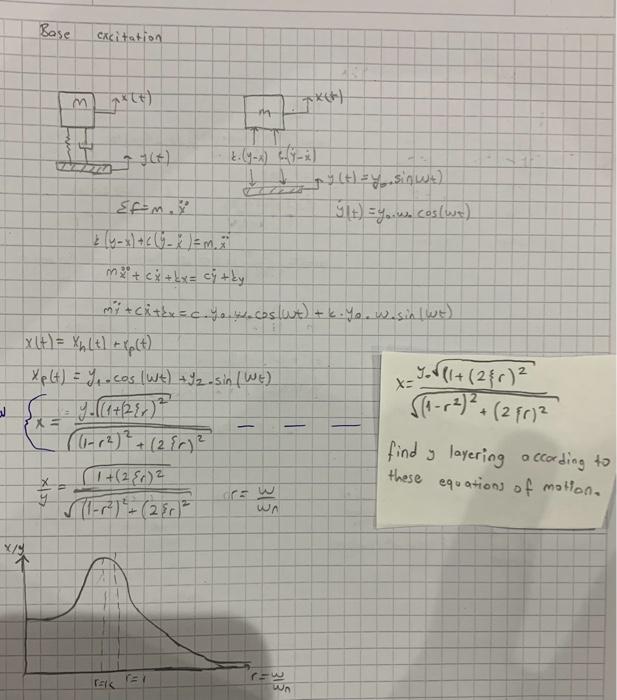 Base excitation
m x(t)
y(t)
m x(t)
k.(y-x) c.(ẏ-ẋ)
y(t)=y₀.sin(wt)
ẏ(t)=y₀.w.cos(wt)
ΣF=m.ẍ
k(y-x)+c(ẏ-ẋ)=m.ẍ
mẍ+cẋ+kx=cẏ+ky
mẍ+cẋ+kx=c.y₀.w.cos(wt)+k.y₀.w.sin(wt)
x(t)=xₕ(t)+xₚ(t)
xₚ(t)=y₁.cos(wt)+y₂.sin(wt)
x=y.√(1+(2ξr)²)/√((1-r²)²+(2ξr)²)
x/y=√(1+(2ξr)²)/√((1-r²)²+(2ξr)²) r=w/wₙ
x=y.√(1+(2ξr)²)/√((1-r²)²+(2ξr)²)
find y layering according to
these equations of motion.
x/y
r=1
r=w/wₙ